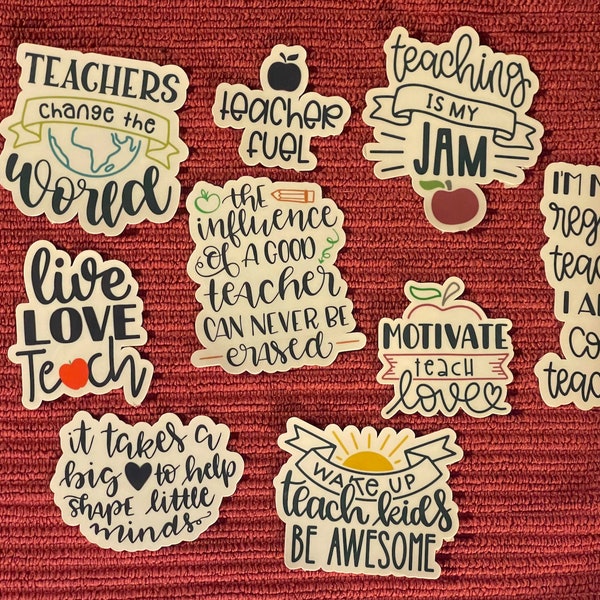 TEACHERS
change the
world
teacher
FUEL
teaching
IS MY
JAM
the
influence
OF A GOOD
teacher
CAN NEVER BE
erased
I'M
I
live
LOVE
Teach
MOTIVATE
teach
love
it takes a
big to help
SHAPE little
minds
WAKE UP
teach kids
BE AWESOME